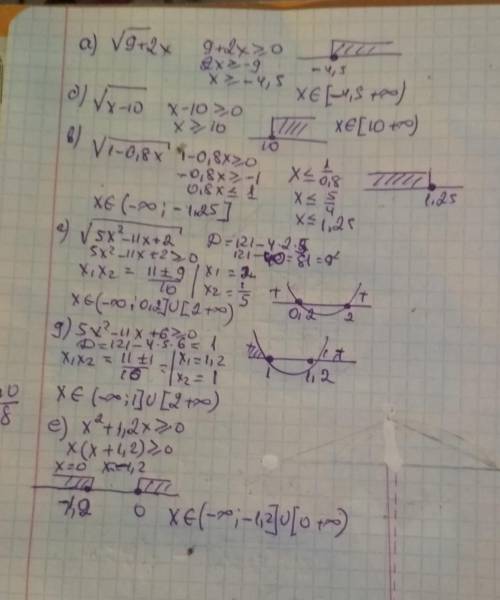 а) √9+2x 9+2x ≥ 0
2x ≥ -9
x ≥ -4,5
-4,5
x∈[-4,5 +∞)
б) √x-10 x-10 ≥ 0
x ≥ 10
10
x∈[10 +∞)
в) √1-0,8x 1-0,8x ≥ 0
-0,8x ≥ -1
0,8x ≤ 1
x ≤ 1/0,8
x ≤ 5/4
x ≤ 1,25
1,25
x∈(-∞; -1,25]
г) √5x²-11x+2 D=121-4·2·5
5x²-11x+2 ≥ 0 121-40=81=9²
x₁x₂ = 11±9/10 x₁=2
x₂=1/5
+ 0,2 2 +
x∈(-∞; 0,2]∪[2 +∞)
д) 5x²-11x+6 ≥ 0
D=121-4·5·6=1
x₁x₂ = 11±1/10 = x₁=1,2
x₂=1
1 1,2 +
x∈(-∞;1]∪[2 +∞)
0/8
е) x²+1,2x ≥ 0
x(x+1,2) ≥ 0
x=0 x=-1,2
-1,2 0
x∈(-∞; -1,2]∪[0 +∞)